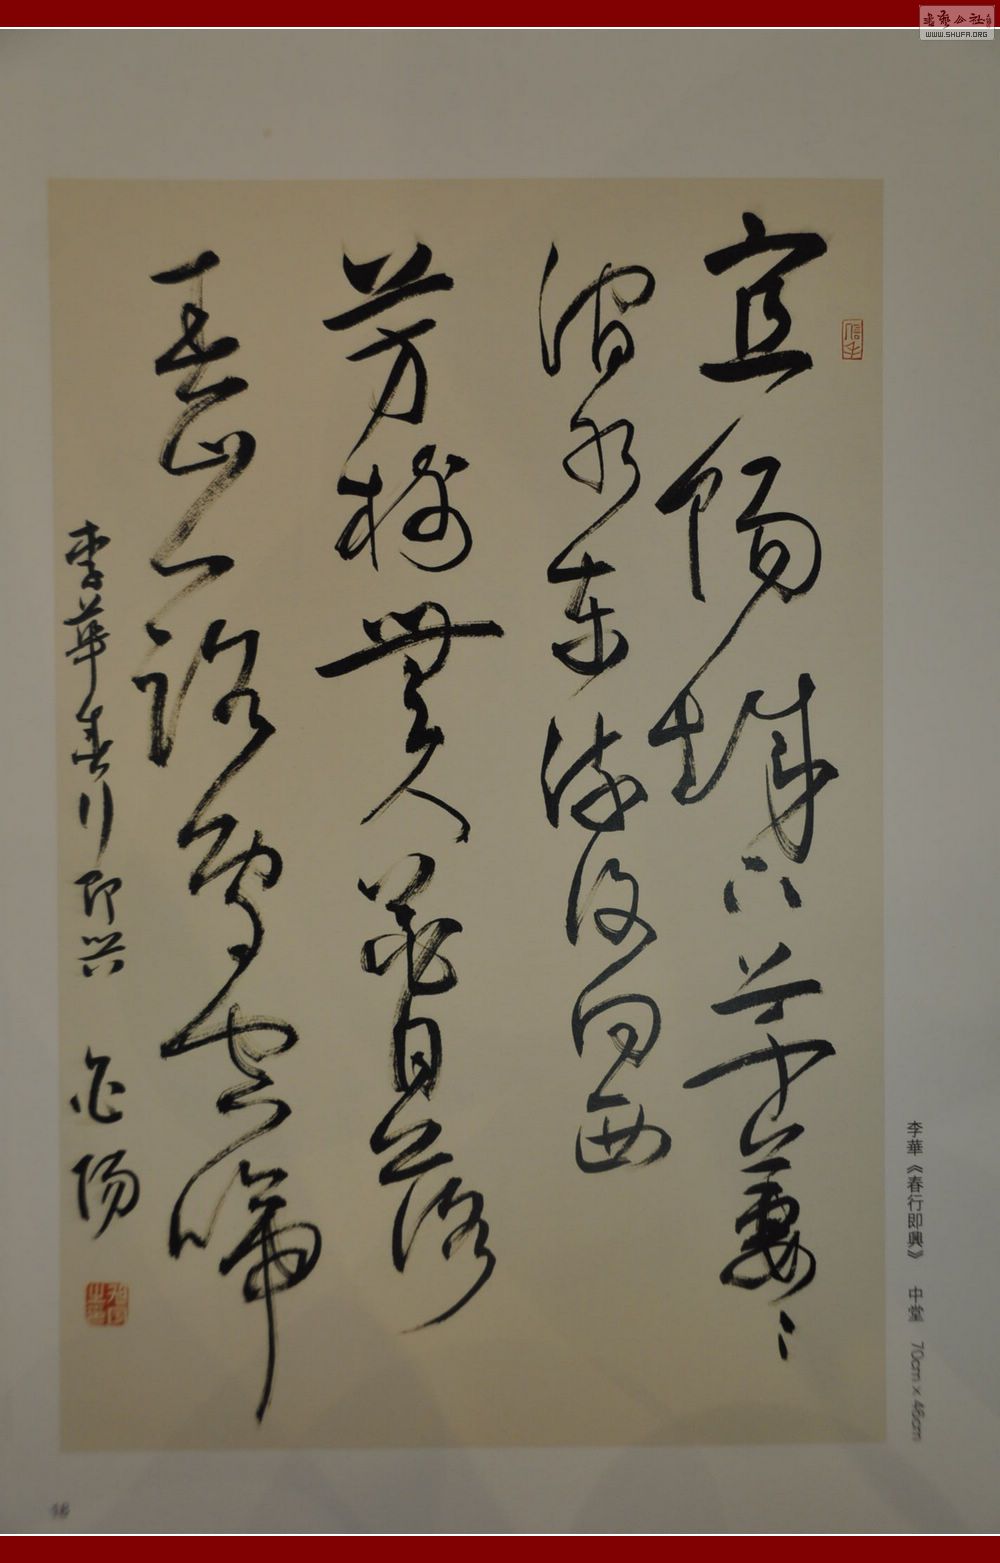 書藝公社
WWW.SHUFA.ORG
宜陽城下草萋〻
澗水東流復向西
芳樹無人花自落
春山一路鳥空啼
李華春行即兴
李華《春行即興》 中堂 70cm×46cm